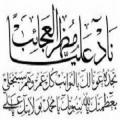 ناد عليا مظهر العجائب
تجده عونا لك في النوائب كل هم وغم سينجلي
يا الله بنبوتك يا محمد بولايتك يا علي